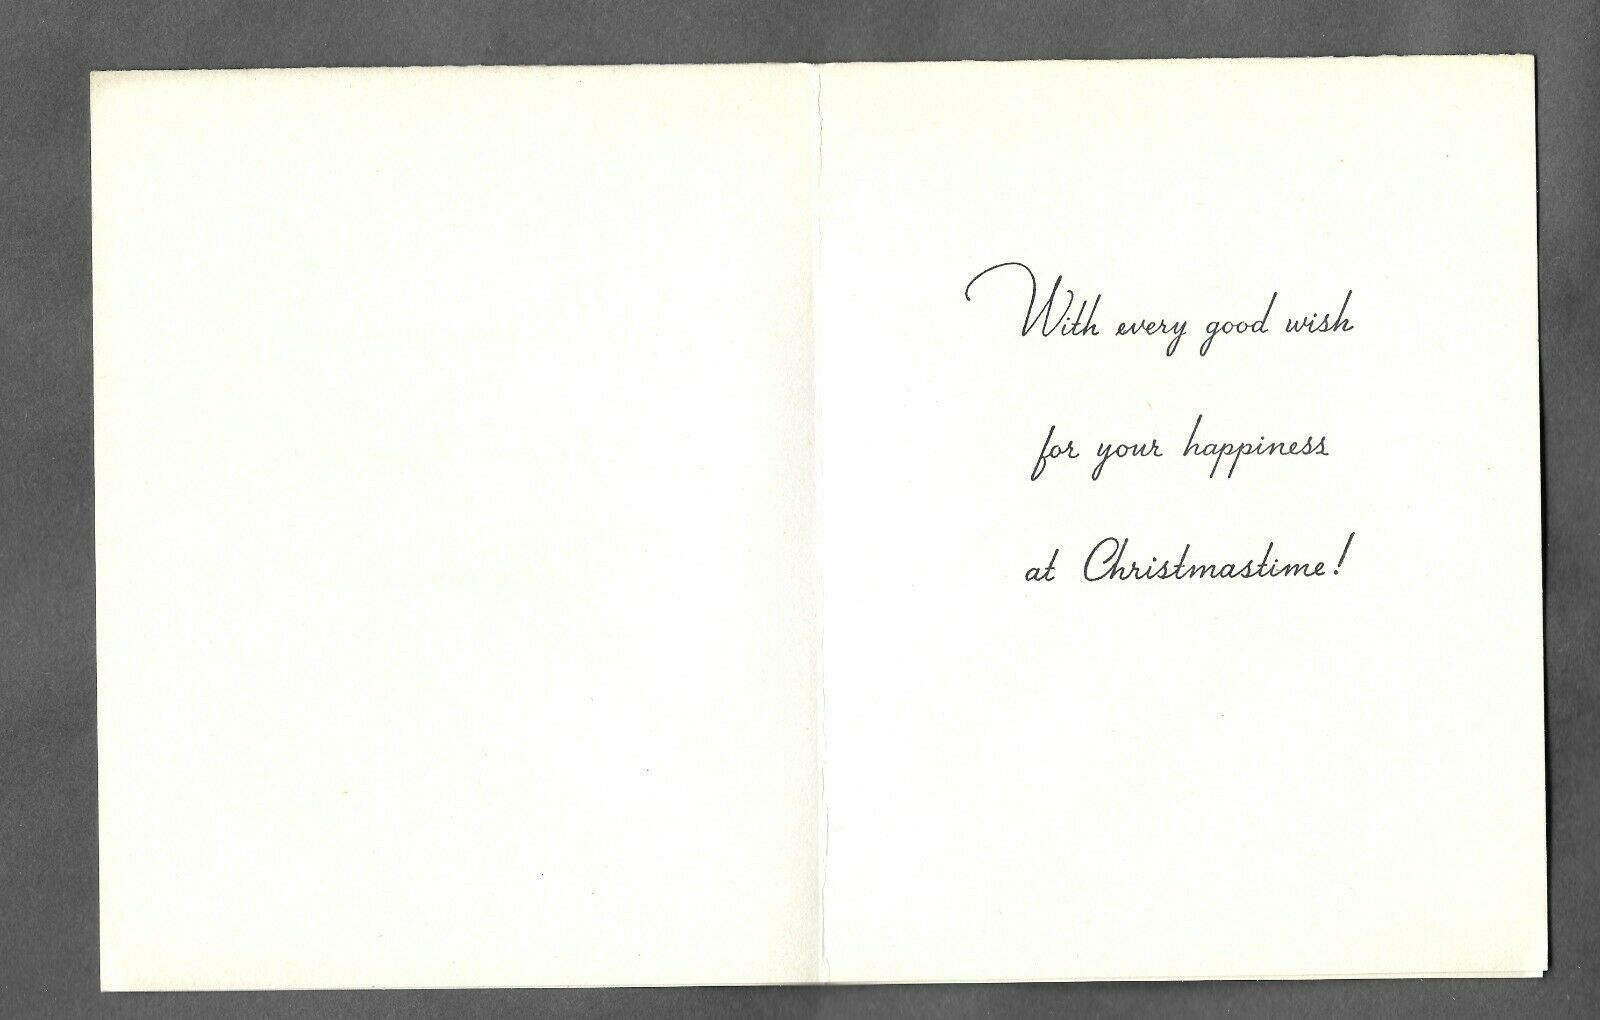 With every good wish
for your happiness
at Christmastime!